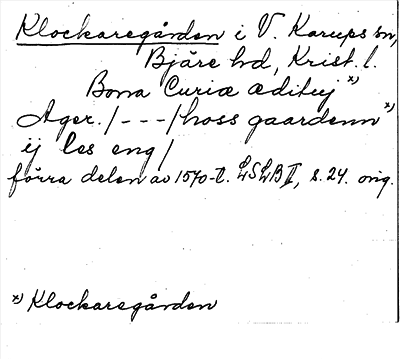 Klockaregården i V. Karups sn,
Bjäre hd, Krist. l.
Bona Curiæ ædituj *)
Ager. /---/ hoss gaardenn *)
ij les eng /
förra delen av 1570-t. LSLB II, s. 24. orig.
*) Klockaregården